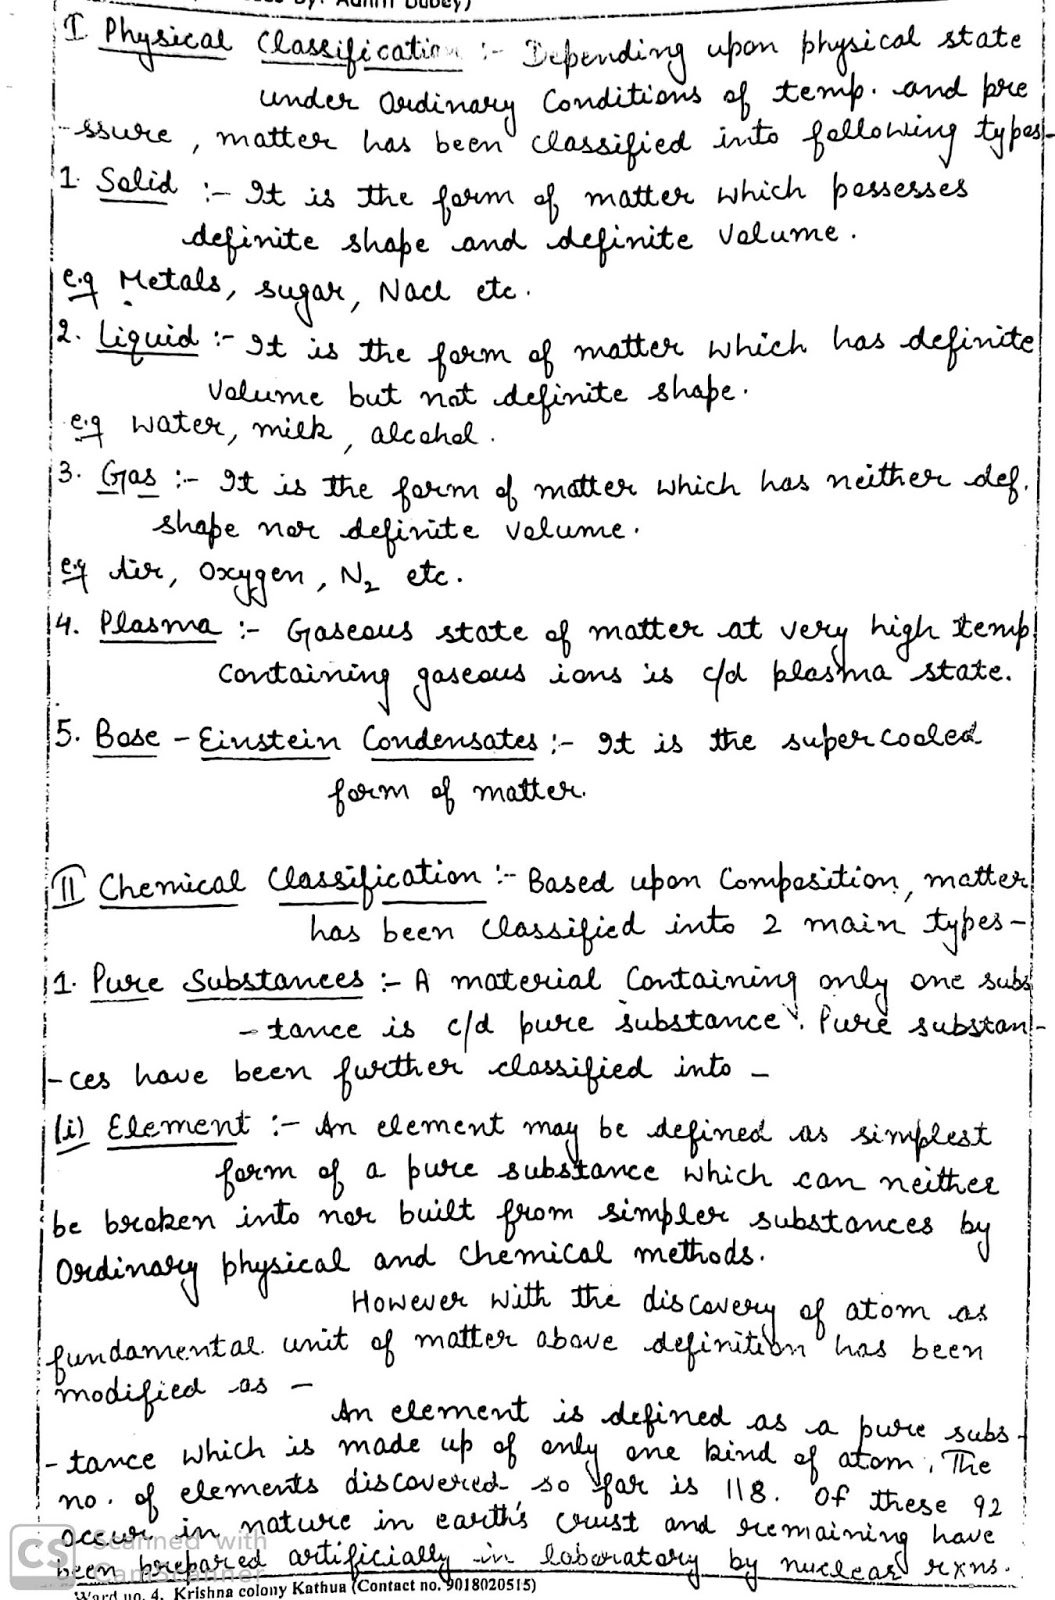 By: Adhiti Dubey)
I Physical Classification :- Depending upon physical state
under Ordinary Conditions of temp. and pre
-ssure, matter has been classified into following types-
1. Solid :- It is the form of matter which possesses
definite shape and definite Volume.
e.g Metals, sugar, Nacl etc.
2. Liquid :- It is the form of matter which has definite
Volume but not definite shape.
e.g water, milk, alcohol.
3. Gas :- It is the form of matter which has neither def.
shape nor definite volume.
e.g Air, Oxygen, N₂ etc.
4. Plasma :- Gaseous state of matter at very high temp
Containing gaseous ions is c/d plasma state.
5. Bose - Einstein Condensates :- It is the supercooled
form of matter.
II Chemical Classification :- Based upon Composition, matter
has been classified into 2 main types-
1. Pure Substances :- A material Containing only one subs
-tance is c/d pure substance. Pure substan-
-ces have been further classified into -
(i) Element :- An element may be defined as simplest
form of a pure substance which can neither
be broken into nor built from simpler substances by
Ordinary physical and Chemical methods.
However with the discovery of atom as
fundamental unit of matter above definition has been
modified as -
An element is defined as a pure subs-
-tance which is made up of only one kind of atom. The
no. of elements discovered so far is 118. Of these 92
occur in nature in earth's crust and remaining have
been prepared artificially in laboratory by nuclear rxns.
CS Scanned with
CamScanner
Ward no. 4, Krishna colony Kathua (Contact no. 9018020515)